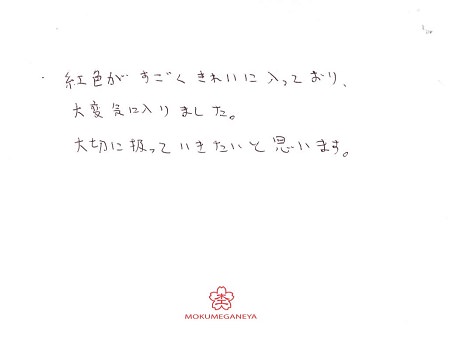 ・紅色がすごくきれいに入っており、
大変気に入りました。
大切に扱っていきたいと思います。
MOKUMEGANEYA